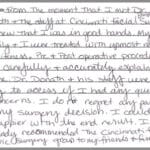 From the moment that I met Dr.
& the staff at Cincinnati Facial
knew that I was in good hands. My
and I were treated with upmost
Pre & Post operative proced
carefully + accurately explain
Dr. Donath + his staff were
to access if I had any qu
concerns. I do not regret any pa
my surgery decision. I could
happier the end result. I
highly recommended The Cincinnati
surgery group to my friends &